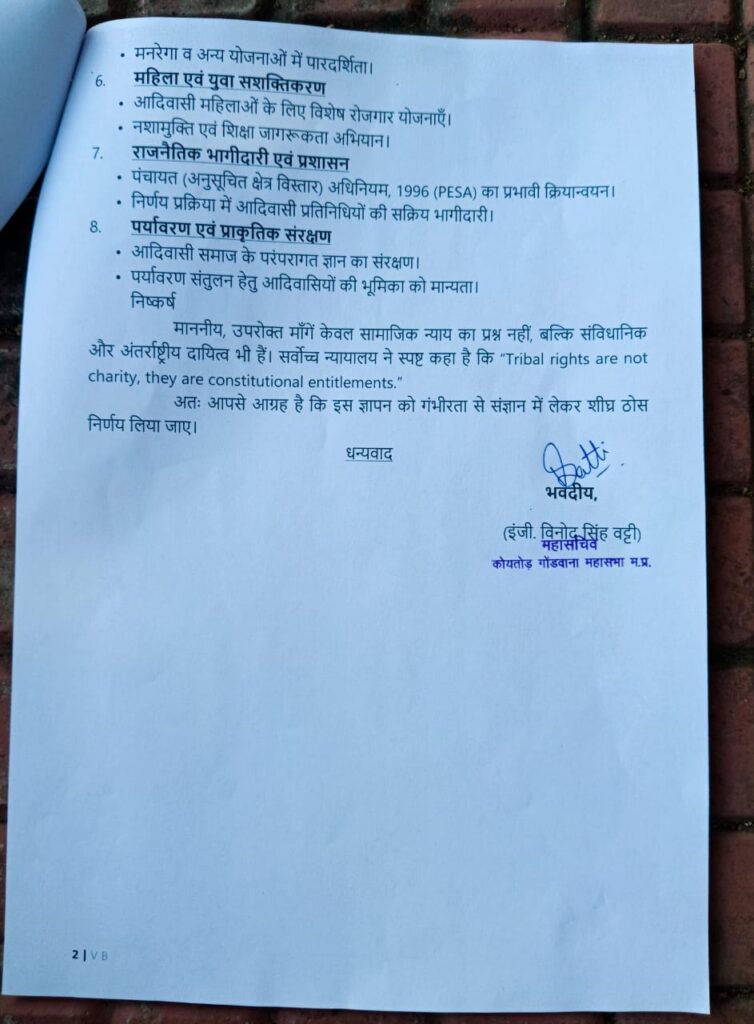 • मनरेगा व अन्य योजनाओं में पारदर्शिता।
6. महिला एवं युवा सशक्तिकरण
• आदिवासी महिलाओं के लिए विशेष रोजगार योजनाएँ।
• नशामुक्ति एवं शिक्षा जागरूकता अभियान।
7. राजनैतिक भागीदारी एवं प्रशासन
• पंचायत (अनुसूचित क्षेत्र विस्तार) अधिनियम, 1996 (PESA) का प्रभावी क्रियान्वयन।
• निर्णय प्रक्रिया में आदिवासी प्रतिनिधियों की सक्रिय भागीदारी।
8. पर्यावरण एवं प्राकृतिक संरक्षण
• आदिवासी समाज के परंपरागत ज्ञान का संरक्षण।
• पर्यावरण संतुलन हेतु आदिवासियों की भूमिका को मान्यता।
निष्कर्ष
माननीय, उपरोक्त माँगें केवल सामाजिक न्याय का प्रश्न नहीं, बल्कि संविधानिक
और अंतर्राष्ट्रीय दायित्व भी हैं। सर्वोच्च न्यायालय ने स्पष्ट कहा है कि “Tribal rights are not
charity, they are constitutional entitlements.”
अतः आपसे आग्रह है कि इस ज्ञापन को गंभीरता से संज्ञान में लेकर शीघ्र ठोस
निर्णय लिया जाए।
धन्यवाद
भवदीय,
(इंजी. विनोद सिंह वट्टी)
महासचिव
कोयतोड़ गोंडवाना महासभा म.प्र.
2 | V B